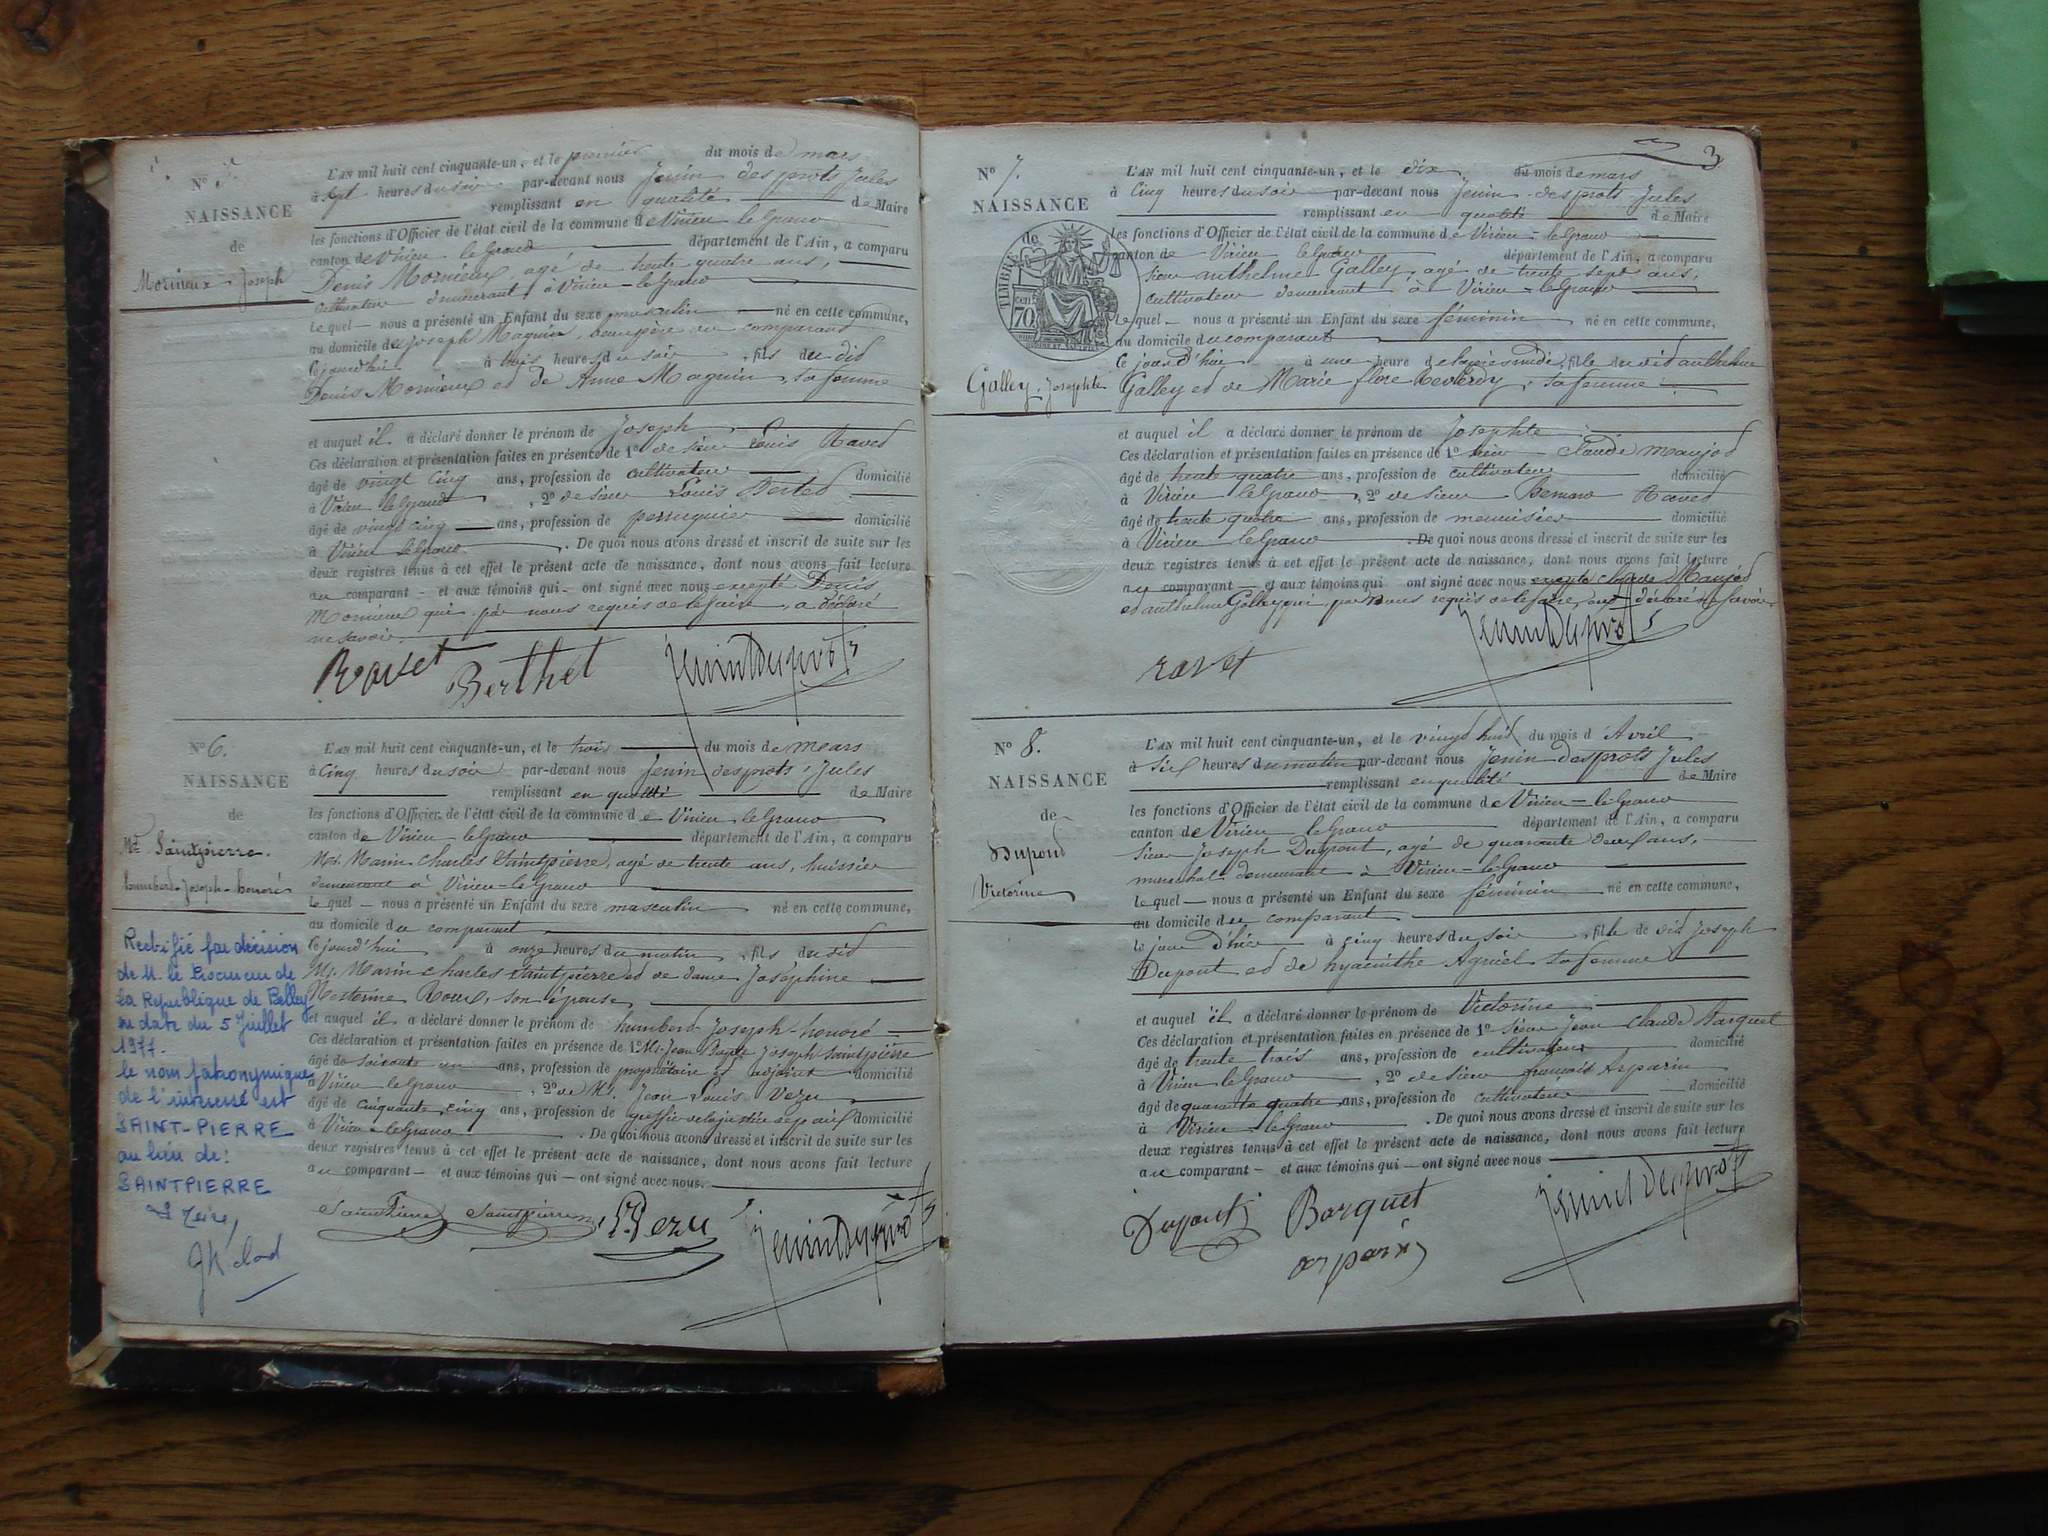 N° 5.
NAISSANCE
de
Mornieux Joseph
L'AN mil huit cent cinquante-un, et le premier du mois de mars
à sept heures du soir par-devant nous Jenin desprots Jules
remplissant en qualité de Maire
les fonctions d'Officier de l'état civil de la commune de Virieu le Grand
canton de Virieu le Grand département de l'Ain, a comparu
Denis Mornieux, agé de trente quatre ans,
cultivateur demeurant à Virieu-le Grand
Lequel nous a présenté un Enfant du sexe masculin né en cette commune,
au domicile de Joseph Maguin, beau père du comparant
cejourd'hui à trois heures du soir, fils du dit
Denis Mornieux et de Anne Maguin, sa femme
et auquel il a déclaré donner le prénom de Joseph
Ces déclaration et présentation faites en présence de 1° de sieur Louis Ravet
âgé de vingt cinq ans, profession de cultivateur domicilié
à Virieu le Grand, 2° de sieur Louis Bertet
âgé de vingt cinq ans, profession de perruquier domicilié
à Virieu le Grand. De quoi nous avons dressé et inscrit de suite sur les
deux registres tenus à cet effet le présent acte de naissance, dont nous avons fait lecture
au comparant et aux témoins qui ont signé avec nous excepté Denis
Mornieux qui par nous requis de le faire, a déclaré
ne savoir.
Ravet Berthet Jenin Duprots
N° 6.
NAISSANCE
de
Mr Saintpierre.
humbert-Joseph-honoré
L'AN mil huit cent cinquante-un, et le trois du mois de mars
à Cinq heures du soir par-devant nous Jenin desprots, Jules
remplissant en qualité de Maire
les fonctions d'Officier de l'état civil de la commune de Virieu le Grand
canton de Virieu le Grand département de l'Ain, a comparu
Mr. Marin Charles Saintpierre, agé de trente ans, huissier
demeurant à Virieu-le Grand
Lequel nous a présenté un Enfant du sexe masculin né en cette commune,
au domicile du comparant
cejourd'hui à onze heures du matin, fils du dit
Mr. Marin Charles Saintpierre et de dame Joséphine
Roux, son épouse,
et auquel il a déclaré donner le prénom de humbert Joseph-honoré
Ces déclaration et présentation faites en présence de 1° Mr. Jean Joseph Saintpierre
âgé de soixante un ans, profession de propriétaire et adjoint domicilié
à Virieu le Grand, 2° de Mr. Jean Louis Vezu
âgé de cinquante cinq ans, profession de greffier de la justice de paix domicilié
à Virieu-le Grand. De quoi nous avons dressé et inscrit de suite sur les
deux registres tenus à cet effet le présent acte de naissance, dont nous avons fait lecture
au comparant et aux témoins qui ont signé avec nous.
SaintPierre Saintpierre Vezu Jenin Duprots
Rectifié par décision
de M. le Procureur de
la République de Belley
en date du 5 Juillet
1977.
le nom patronymique
de l'intéressé est
SAINT-PIERRE
au lieu de:
SAINTPIERRE
Le Maire,
3
N° 7.
NAISSANCE
de
TIMBRE
70
Galley, Josephte
L'AN mil huit cent cinquante-un, et le dix du mois de mars
à Cinq heures du soir par-devant nous Jenin desprots Jules
remplissant en qualité de Maire
les fonctions d'Officier de l'état civil de la commune de Virieu-le Grand
canton de Virieu le Grand département de l'Ain, a comparu
sieur anthelme Galley, agé de trente sept ans,
cultivateur demeurant à Virieu-le Grand
Lequel nous a présenté un Enfant du sexe féminin né en cette commune,
au domicile du comparant
Ce jourd'hui à une heure de l'après midi, fille du dit anthelme
Galley et de Marie flore Reverdy, sa femme
et auquel il a déclaré donner le prénom de Josephte
Ces déclaration et présentation faites en présence de 1° sieur claude Maujot
âgé de trente quatre ans, profession de cultivateur domicilié
à Virieu le Grand, 2° de sieur Bernard Ravet
âgé de trente quatre ans, profession de menuisier domicilié
à Virieu le Grand. De quoi nous avons dressé et inscrit de suite sur les
deux registres tenus à cet effet le présent acte de naissance, dont nous avons fait lecture
au comparant et aux témoins qui ont signé avec nous excepté claude Maujot
et anthelme Galley qui, par nous requis de le faire, ont déclaré ne savoir
ravet Jenin Duprots
N° 8.
NAISSANCE
de
Dupont
Victorine
L'AN mil huit cent cinquante-un, et le vingt huit du mois d'Avril
à six heures du matin par-devant nous Jenin Desprots Jules
remplissant en qualité de Maire
les fonctions d'Officier de l'état civil de la commune de Virieu-le Grand
canton de Virieu le Grand département de l'Ain, a comparu
sieur Joseph Dupont, agé de quarante deux ans,
marechal demeurant à Virieu-le Grand
Lequel nous a présenté un Enfant du sexe féminin né en cette commune,
au domicile du comparant
le jour d'hier à cinq heures du soir, fille de dit Joseph
Dupont et de hyacinthe Agniel sa femme
et auquel il a déclaré donner le prénom de Victorine
Ces déclaration et présentation faites en présence de 1° sieur Jean Claude Barquet
âgé de trente trois ans, profession de cultivateur domicilié
à Virieu le Grand, 2° de sieur françois Arparin
âgé de quarante quatre ans, profession de cultivateur domicilié
à Virieu le Grand. De quoi nous avons dressé et inscrit de suite sur les
deux registres tenus à cet effet le présent acte de naissance, dont nous avons fait lecture
au comparant et aux témoins qui ont signé avec nous
Dupont Barquet Jenin Duprots
arparin